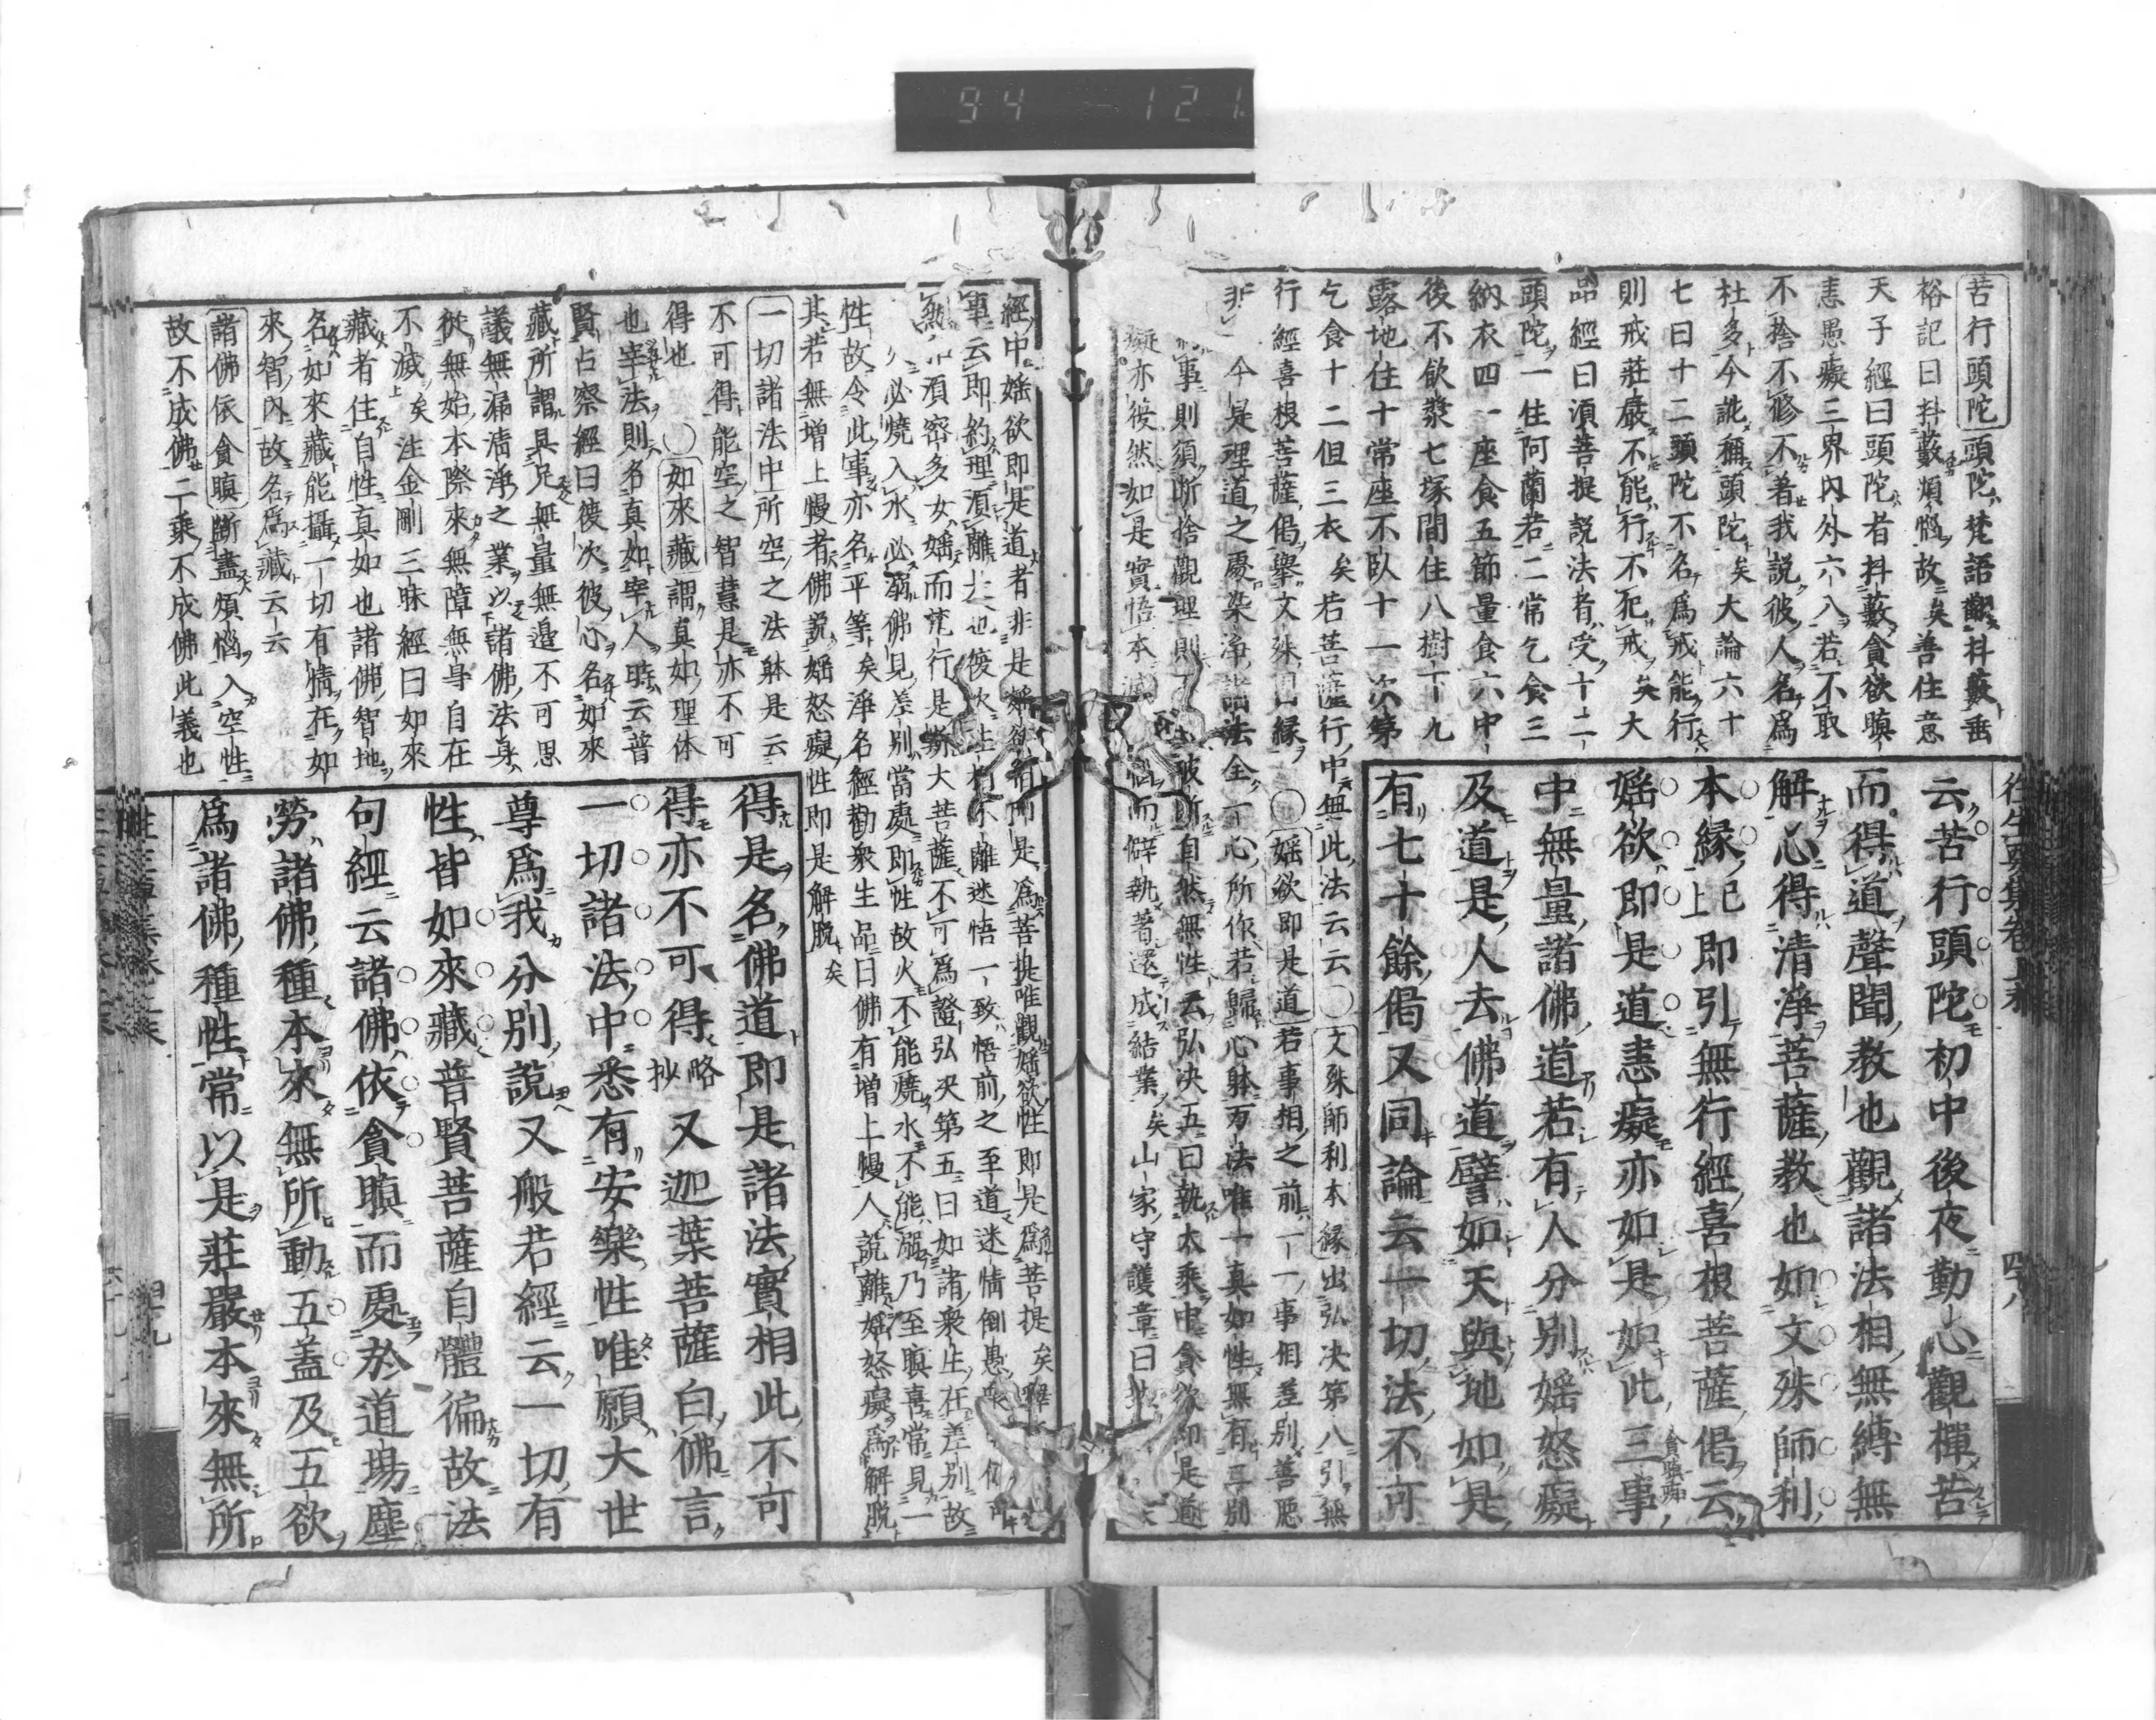 94-121
苦行頭陀頭陀梵語翻抖藪垂
裕記曰抖藪煩惱故矣善住意
天子經曰頭陀者抖藪貪欲瞋
恚愚癡三界內外六入若不取
不捨不修不著我說彼人名爲
杜多今訛稱頭陀矣大論六十
七曰十二頭陀不名爲戒能行
則戒莊嚴不能行不犯戒矣大
品經曰須菩提說法者受十二
頭陀一住阿蘭若二常乞食三
納衣四一座食五節量食六中
後不飲漿七塚間住八樹下九
露地住十常座不臥十一次第
乞食十二但三衣矣若菩薩行中無此法云云○文殊師利本緣出弘決第八引無
行經喜根菩薩偈擧文殊緣○婬欲即是道若事相之前一一事相差別善惡
非今是理道之處染淨諸法全一心所作若歸心躰万法唯一真如性無有二別
事則須斷捨觀理則破斷自然無性云弘決五曰執大乘中貪欲即是道
癡亦復然如是實悟本而僻執著還成結業矣山家守護章曰
往生要集卷上末 四十八
云苦行頭陀初中後夜勤心觀禪苦
而得道聲聞教也觀諸法相無縛無
解心得清淨菩薩教也如文殊師利
本緣已上即引無行經喜根菩薩偈云
婬欲即是道恚癡亦如是如此三事貪瞋癡
中無量諸佛道若有人分別婬怒癡
及道是人去佛道譬如天與地如是
有七十餘偈又同論云一切法不可
經中婬欲即是道者非是婬欲者即是爲菩提唯觀婬欲性即是爲菩提矣
事云即約理須離之也彼次不離迷悟一致悟前之至道迷情倒愚
須密多女婬而梵行是大菩薩不可爲證弘決第五曰如諸衆生在差別故
火必燒入水必溺佛見差別當處即性故火不能燒水不能溺乃至瞋喜常見一
性故令此事亦名平等矣淨名經勸衆生品曰佛有增上慢人說離婬怒癡爲解脫
其若無增上慢者佛說婬怒癡性即是解脫矣
一切諸法中所空之法躰是云
不可得能空之智慧是亦不可
得也○如來藏謂真如理体
也宰法則名真如宰人時云普
賢占察經曰復次彼心名如來
藏所謂具足無量無邊不可思
議無漏清淨之業以諸佛法身
從無始本際來無障無身自在
不滅矣注金剛三昧經曰如來
藏者住自性真如也諸佛智地
名如來藏能攝一切有情在如
來智內故名爲藏云云
諸佛依貪瞋斷盡煩惱入空性
故不成佛二乘不成佛此義也
得是名佛道即是諸法實相此不可
得亦不可得略抄又迦葉菩薩白佛言
一切諸法中悉有安樂性唯願大世
尊爲我分別說又般若經云一切有
性皆如來藏普賢菩薩自體徧故法
句經云諸佛依貪瞋而處於道場塵
勞諸佛種本來無所動五蓋及五欲
爲諸佛種性常以是莊嚴本來無所